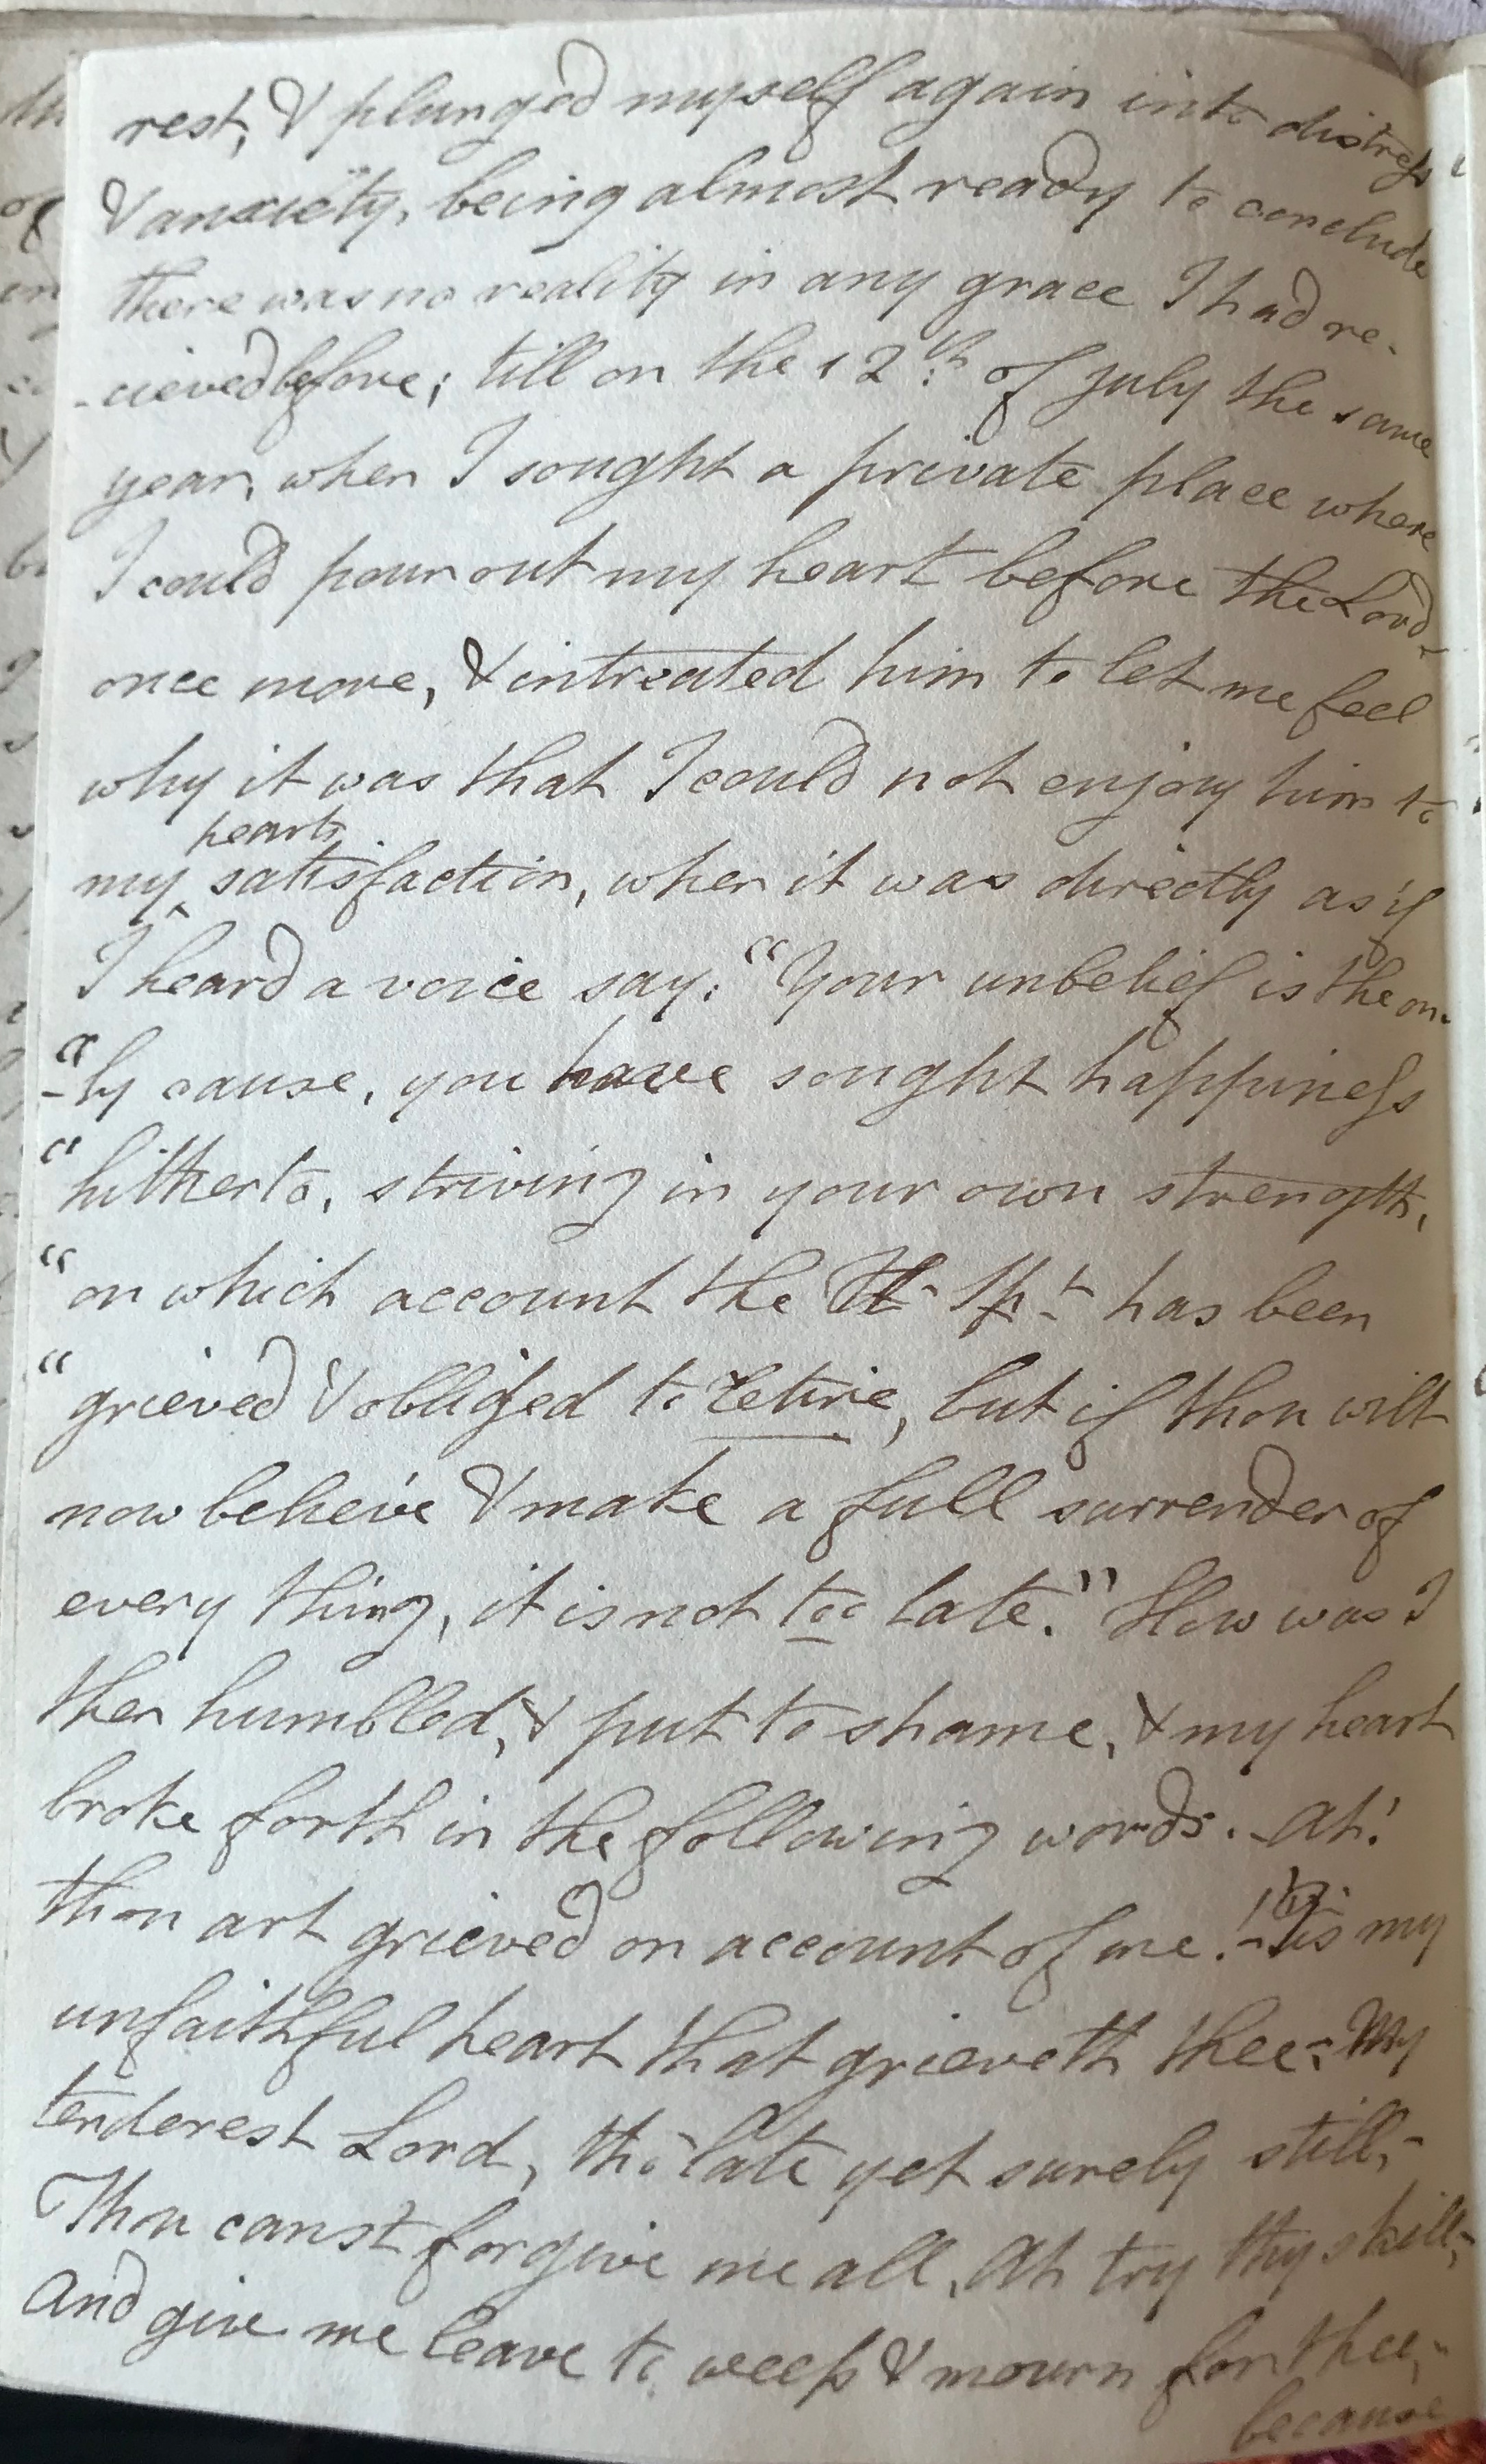 rest, & plunged myself again into distress
& anxiety, being almost ready to conclude
there was no reality in any grace I had re-
-cieved before; till on the 12th of July the same
year, when I sought a private place where
I could pour out my heart before the Lord
once more, & intreated him to let me feel
why it was that I could not enjoy him to
hearts
my ‸ satisfaction, when it was directly as if
I heard a voice say: "Your unbelief is the on-
"-ly cause, you have sought happiness
"hitherto, striving in your own strength,
"on which account the H- Spt has been
"grieved & obliged to retire, but if thou wilt
now believe & make a full surrender of
every thing, it is not too late." How was I
then humbled, & put to shame, & my heart
broke forth in the following words. - Ah!
thou art grieved on account of me! - 'tis my
unfaithful heart that grieveth thee; - My
tenderest Lord, tho' late yet surely still, -
Thou canst forgive me all, Ah try thy skill, -
And give me leave to weep & mourn for thee, -
because